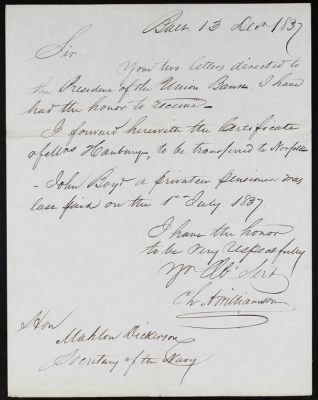 Balt. 13 Decr 1837
Sir
Your two letters directed to
the President of the Union Bank I have
had the honor to receive.
I forward herewith the Certificate
of Mrs Hanbury, to be transferred to Norfolk
- John Boyd a privateer pensioner was
last paid on the 1st July 1837
I have the honor
to be very respectfully
Yr Obt Servt
Ch. A Williamson
Hon
Mahlon Dickerson
Secretary of the Navy